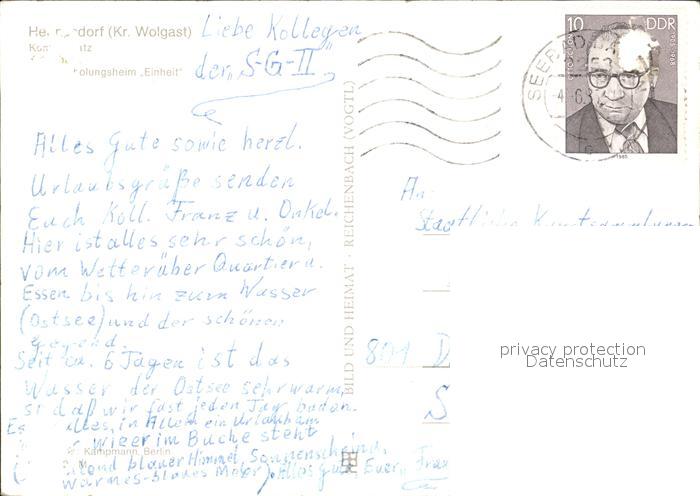 He dorf (Kr. Wolgast)
Kon tz
olungsheim „Einheit“
Liebe Kollegen
der „S-G-II“
Alles Gute sowie herzl.
Urlaubsgrüße senden
Euch Koll. Franz u. Onkel.
Hier ist alles sehr schön,
vom Wetter über Quartier u.
Essen bis hin zum Wasser
(Ostsee) und der schönen
Gegend.
Seit ca. 6 Tagen ist das
Wasser der Ostsee sehr warm,
so daß wir fast jeden Tag baden.
alles, in Allem ein Urlaub
wie er im Buche steht
blauer Himmel, Sonnenschein u.
warmes-blaues Meer). Alles Gute, Euer „Franz
Kampmann, Berlin
BILD UND HEIMAT · REICHENBACH (VOGTL)
10 DDR
1985
SEEBAD
An:
Staatliche Kunstsammlungen
801 D
S
privacy protection
Datenschutz